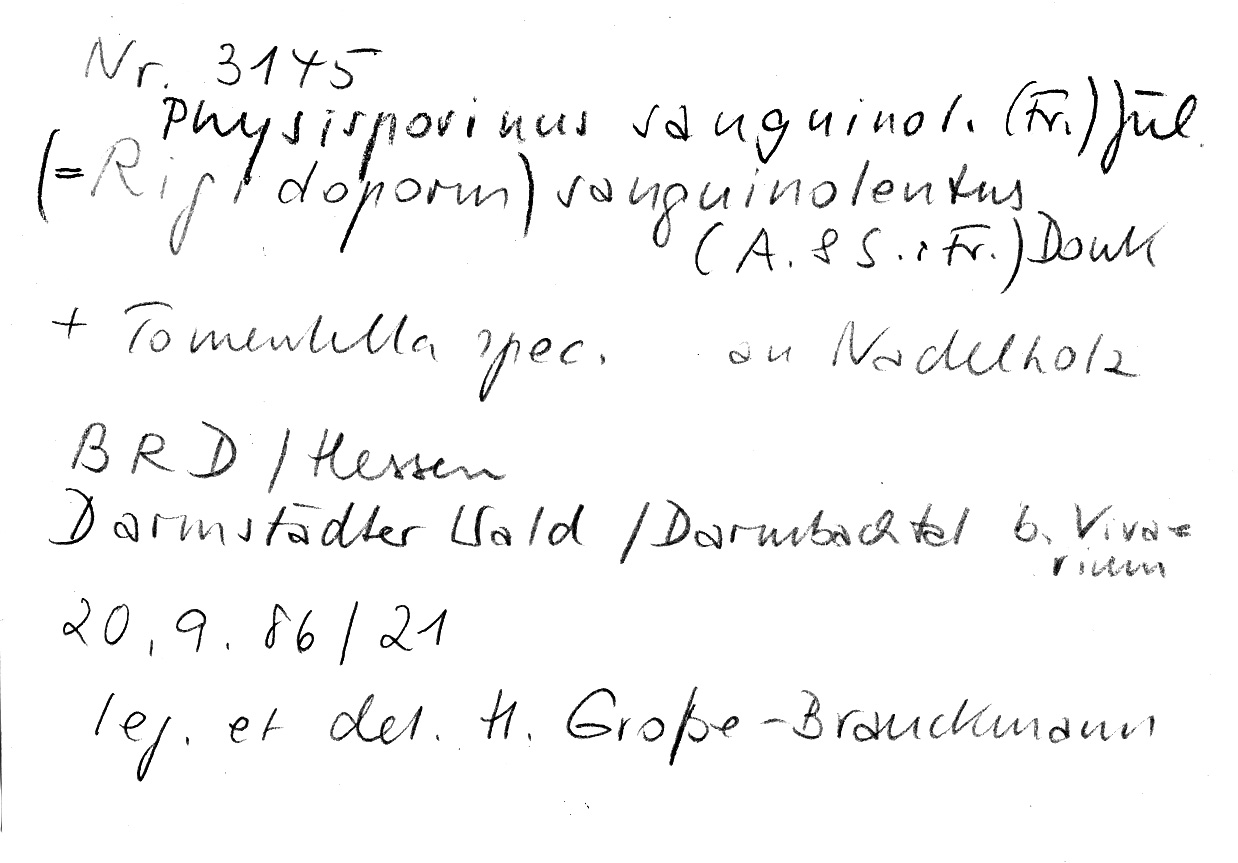 Nr. 3145
Physisporinus sanguinol. (Fr.) Jül.
(= Rigidoporus) sanguinolentus
(A. & S.: Fr.) Donk
+ Tomentella spec. an Nadelholz
BRD / Hessen
Darmstädter Wald / Darmbachtal b. Viva=
rium
20.9.86/21
leg. et det. H. Große-Brauckmann